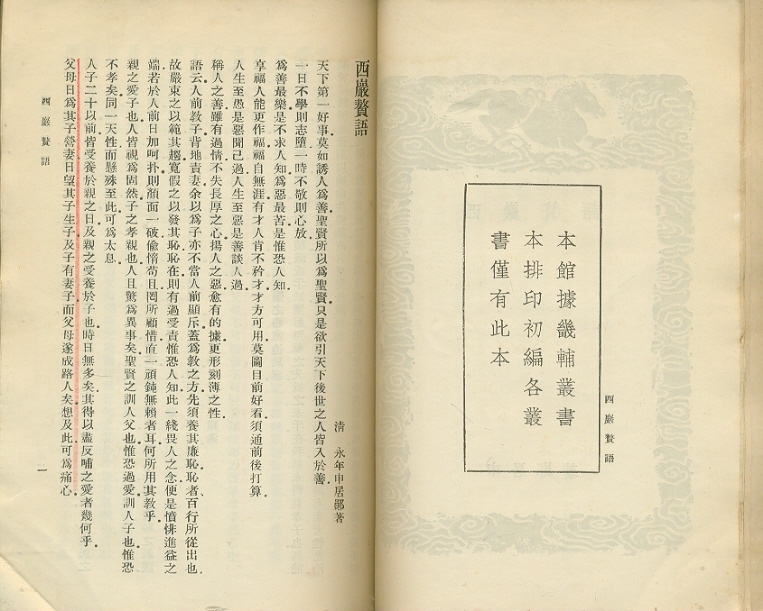 本館據畿輔叢書
本排印初編各叢
書僅有此本
西巖贅語
西巖贅語
清　永年申居鄖著
天下第一好事莫如誘人為善聖賢所以為聖賢只是欲引天下後世之人皆入於善
一日不學則志墮一時不敬則心放
為善最樂是不求人知為惡最苦是惟恐人知
享福人能更作福福自無涯有才人肯不矜才才方可用莫圖目前好看須通前後打算
人生至愚是惡聞己過人生至惡是善談人過
稱人之善雖有過情不失長厚之心揚人之惡愈有的據更形刻薄之性
語云人前教子背地責妻余以為子亦不當人前顯斥蓋為教之方先須養其廉恥恥者百行所從出也
故嚴束之以範其趨寬假之以發其恥恥在則有過受責惟恐人知此一綫畏人之念便是憤悱進益之
端若於人前日加呵扑則顏面一破偷惰苟且罔所顧惜直一頑鈍無賴者耳何所用其教乎
親之愛子也人皆視為固然子之孝親也人且驚為異事矣聖賢之訓人父也惟恐過愛訓人子也惟恐
不孝矣同一天性而懸殊至此可為太息
人子二十以前皆受養於親之日及親之受養於子也時日無多矣其得以盡反哺之愛者幾何乎
父母日為其子營妻日望其子生子及子有妻子而父母遂成路人矣想及此可為痛心
西巖贅語
一